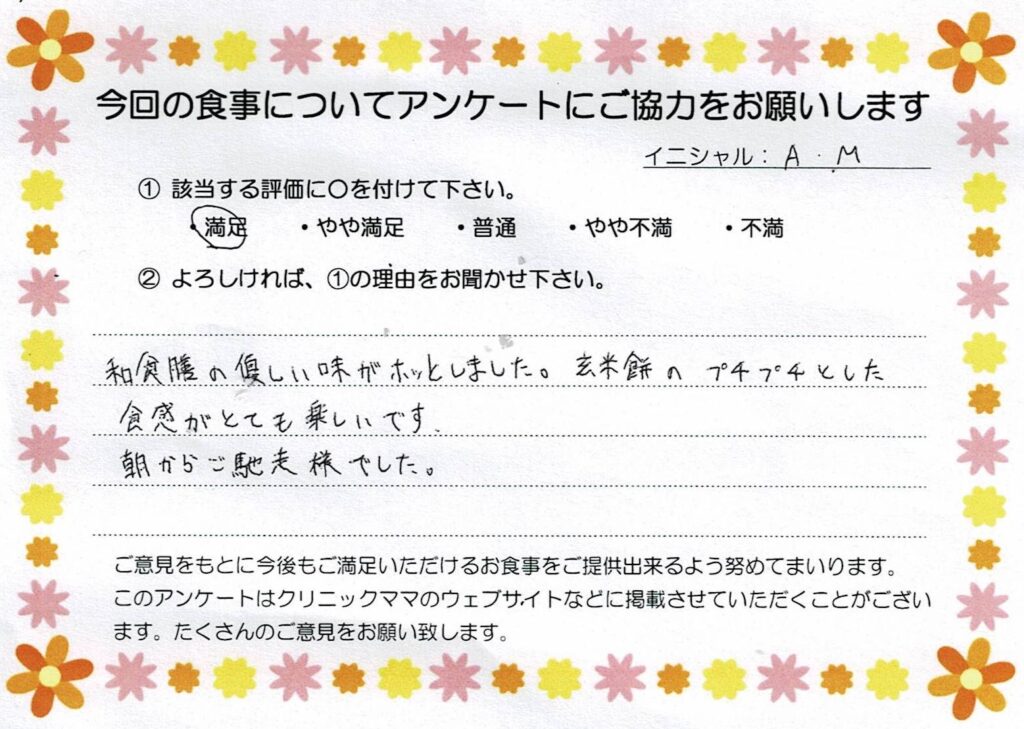 今回の食事についてアンケートにご協力をお願いします
イニシャル： A . M
① 該当する評価に〇を付けて下さい。
・満足 ・やや満足 ・普通 ・やや不満 ・不満
② よろしければ、①の理由をお聞かせ下さい。
和食膳の優しい味がホッとしました。玄米餅の プチプチとした
食感がとても楽しいです.
朝からご馳走様でした。
ご意見をもとに今後もご満足いただけるお食事をご提供出来るよう努めてまいります。
このアンケートはクリニックママのウェブサイトなどに掲載させていただくことがござい
ます。たくさんのご意見をお願い致します。